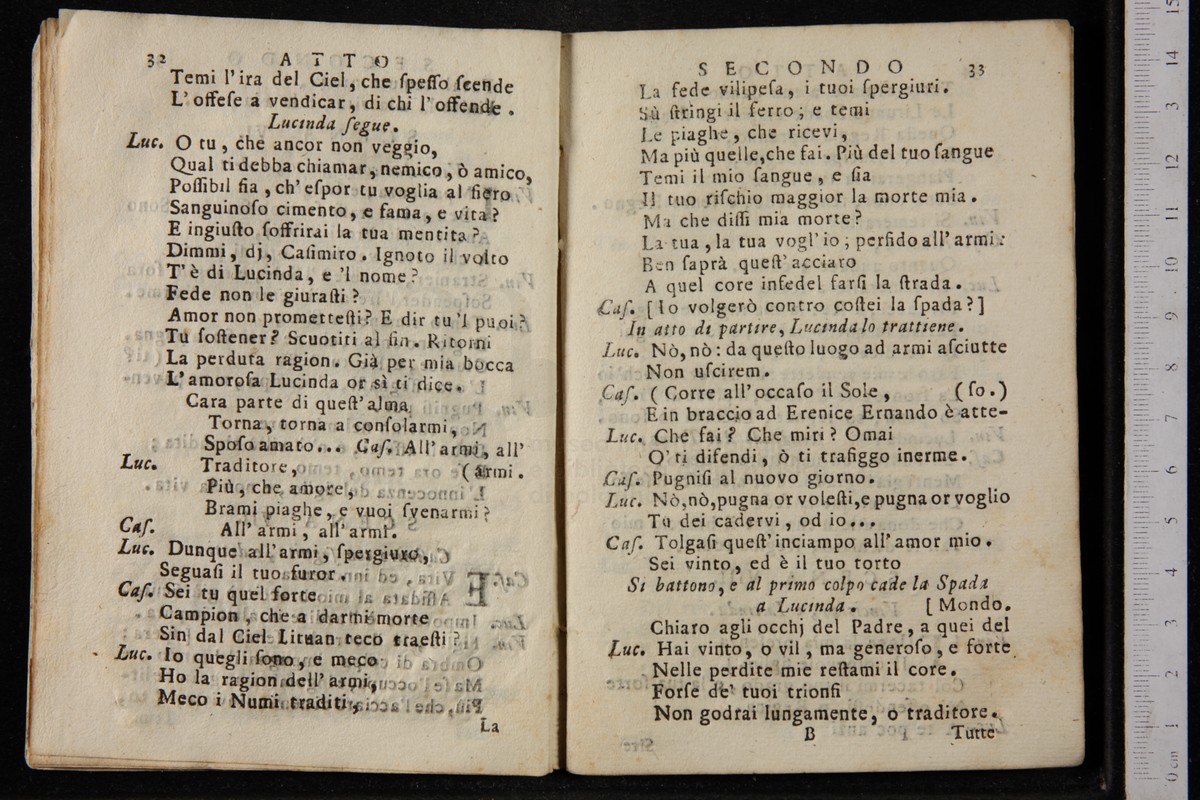 32 ATTO
Temi l'ira del Ciel, che ſpeſſo ſcende
L'offeſe a vendicar, di chi l'offende.
Lucinda ſegue.
Luc. O tu, che ancor non veggio,
Qual ti debba chiamar, nemico, ò amico,
Poſſibil ſia, ch'eſpor tu voglia al fiero
Sanguinoſo cimento, e fama, e vita?
E ingiuſto ſoffrirai la tua mentita?
Dimmi, dj, Caſimiro. Ignoto il volto
T'è di Lucinda, e 'l nome?
Fede non le giuraſti?
Amor non prometteſti? E dir tu 'l puoi?
Tu ſoſtener? Scuotiti al fin. Ritorni
La perduta ragion. Già per mia bocca
L'amoroſa Lucinda or sì ti dice.
Cara parte di queſt'alma
Torna, torna a conſolarmi,
Spoſo amato... Caſ. All'armi, all'
Luc. Traditore, (armi.
Più, che amore,
Brami piaghe, e vuoi ſvenarmi?
Caſ. All'armi, all'armi.
Luc. Dunque all'armi, ſpergiuro,
Seguaſi il tuo furor.
Caſ. Sei tu quel forte
Campion, che a darmi morte
Sin dal Ciel Lituan teco traeſti?
Luc. Io quegli ſono, e meco
Ho la ragion dell'armi,
Meco i Numi traditi,
La
SECONDO 33
La fede vilipeſa, i tuoi ſpergiuri.
Sù ſtringi il ferro; e temi
Le piaghe, che ricevi,
Ma più quelle,che fai. Più del tuo ſangue
Temi il mio ſangue, e ſia
Il tuo riſchio maggior la morte mia.
Ma che diſſi mia morte?
La tua, la tua vogl'io; perfido all'armi:
Ben ſaprà queſt'acciaro
A quel core infedel farſi la ſtrada.
Caſ. [Io volgerò contro coſtei la ſpada?]
In atto di partire, Lucinda lo trattiene.
Luc. Nò, nò: da queſto luogo ad armi aſciutte
Non uſcirem.
Caſ. (Corre all'occaſo il Sole, (ſo.)
E in braccio ad Erenice Ernando è atte-
Luc. Che fai? Che miri? Omai
O' ti difendi, ò ti trafiggo inerme.
Caſ. Pugniſi al nuovo giorno.
Luc. Nò,nò,pugna or voleſti,e pugna or voglio
Tu dei cadervi, od io...
Caſ. Tolgaſi queſt'inciampo all'amor mio.
Sei vinto, ed è il tuo torto
Si battono, e al primo colpo cade la Spada
a Lucinda. [Mondo.
Chiaro agli occhj del Padre, a quei del
Luc. Hai vinto, o vil, ma generoſo, e forte
Nelle perdite mie reſtami il core.
Forſe de' tuoi trionfi
Non godrai lungamente, o traditore.
B Tutte